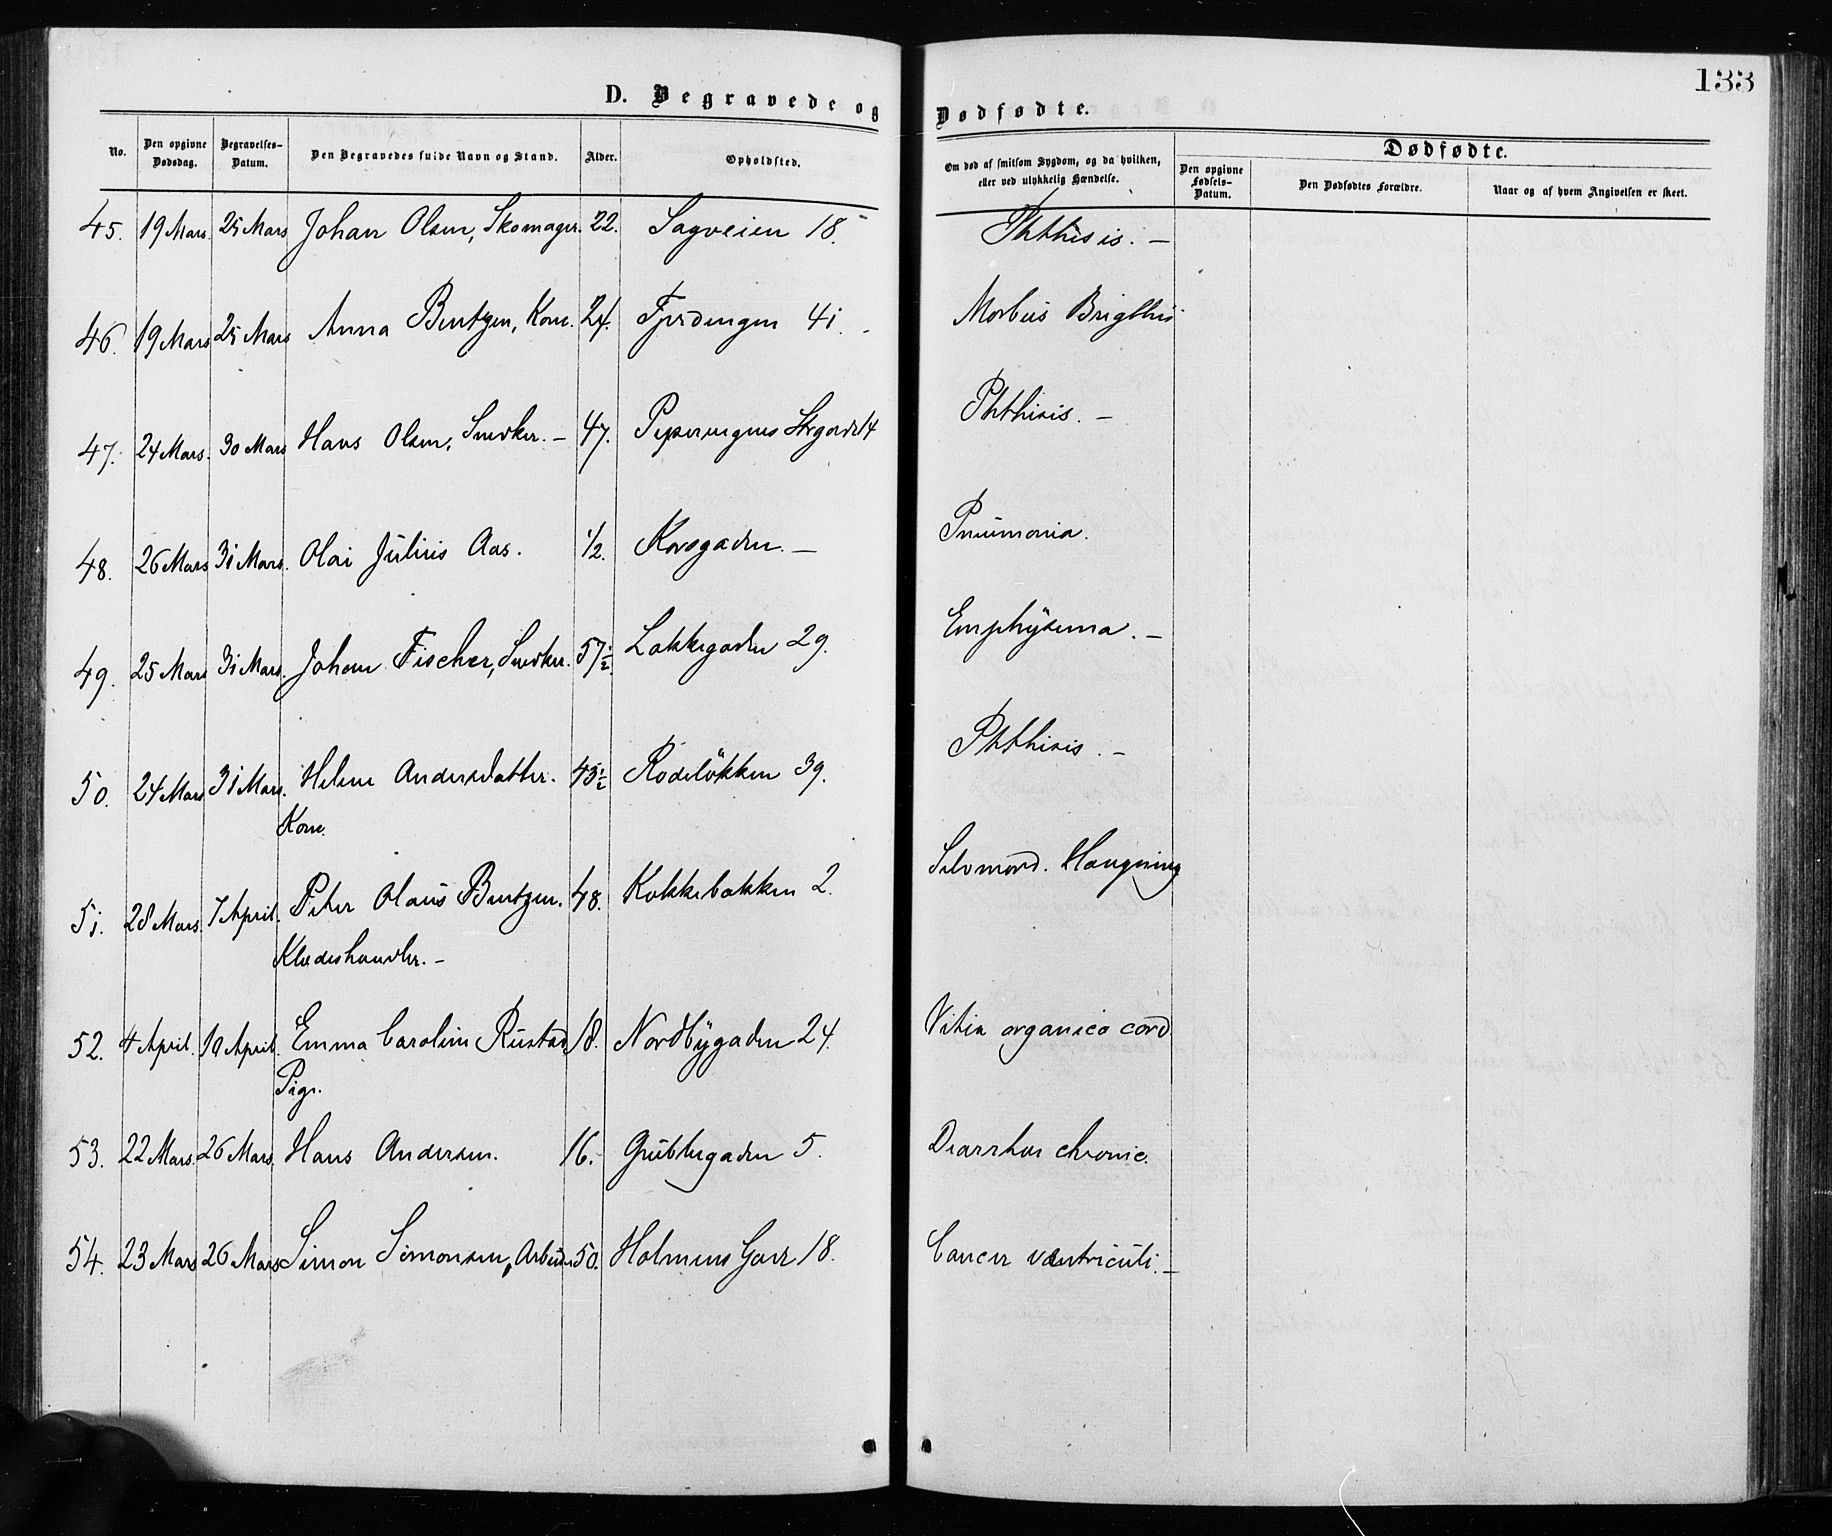 133
D. Begravede og Dødfødte.
No. Den opgivne Dødsdag. Begravelses-Datum. Den Begravedes fulde Navn og Stand. Alder. Opholdsted. Om død af smitsom Sygdom, og da hvilken, eller ved ulykkelig Hændelse. Dødfødte.
Den opgivne Fødsels-Datum. Den Dødfødtes Forældre. Naar og af hvem Angivelsen er skeet.
45. 19 Mars. 25 Mars Johan Olsen, Skomager. 22. Sagveien 18. Phthisis. –
46. 19 Mars 25 Mars Anna Berntzen, Kone. 24. Fjerdingen 41. Morbus Brigthii
47. 24 Mars. 30 Mars Hans Olsen, Snedker. – 47. Pipervigens 14 Phthisis. –
48. 26 Mars 31 Mars. Olai Julius Aas. 1/2. Korsgaden. – Pneumonia.
49. 25 Mars 31 Mars. Johan Fischer, Snedker. 57 1/2. Lakkegaden 29. Emphysema. –
50. 24 Mars 31 Mars. Helene Andersdatter. 45 1/2 Rodeløkken 39. Phthisis. –
Kone.
51. 28 Mars. 7 April. Peter Olaus Berntzen. 48. Bakken 2. Selvmord. Hængning
Klædeshandler. –
52. 4 April. 10 April. Emma Caroline Rustad 18. Nordbygaden 24. Vitia organica cord
Pige.
53. 22 Mars. 26 Mars. Hans Andersen. 16. Grubbegaden 5. Diarrhoe chronic.
54. 23 Mars 26 Mars Simon Simonsen, Arbeider 50. Holmens Gade 18. Cancer ventriculi. –